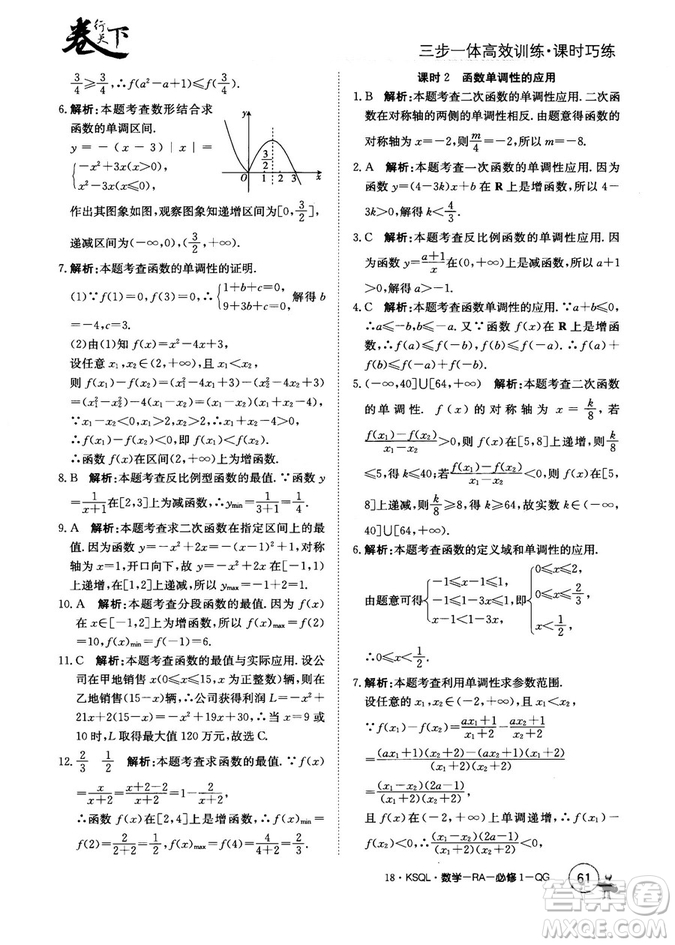 卷行天下
三步一体高效训练·课时巧练
3/4≥3/4,∴f(a²-a+1)≤f(3/4).
6. 解析:本题考查数形结合求
函数的单调区间.
y = -(x-3)|x| =
{-x²+3x(x>0),
x²-3x(x≤0).
作出其图象如图,观察图象知递增区间为[0,3/2],
递减区间为(-∞,0),(3/2,+∞).
7. 解析:本题考查函数的单调性的证明.
(1)∵f(1)=0,f(3)=0,∴{1+b+c=0, 9+3b+c=0, 解得 b
=-4,c=3.
(2)由(1)知 f(x)=x²-4x+3.
设任意 x₁,x₂∈(2,+∞),且 x₁<x₂,
则 f(x₁)-f(x₂)=(x₁²-4x₁+3)-(x₂²-4x₂+3)
=(x₁²-x₂²)-4(x₁-x₂)=(x₁-x₂)(x₁+x₂-4).
∵x₁-x₂<0,x₁+x₂>4,∴f(x₁)-f(x₂)<0.
∴函数 f(x)在区间(2,+∞)上为增函数.
8. B 解析:本题考查反比例型函数的最值.函数 y=
1/(x+1)在[2,3]上为减函数,∴ymin=1/(3+1)=1/4.
9. A 解析:本题考查求二次函数在指定区间上的最
值.因为二次函数 y=-x²+2x=-(x-1)²+1,对称
轴为 x=1,开口向下,故 y=-x²+2x 在[0,1]上单调
上递增,在[1,2]上递减,所以 ymax=1.
10. A 解析:本题考查分段函数的最值. f(x)在
[-1,2]上为增函数,∴f(x)的最大值为 f(2)
=10,f(x)的最小值为 f(-1)=6.
11. C 解析:本题考查函数的最值与实际应用.设公
司在甲地销售 x 辆(0≤x≤15,x 为正整数)辆,则在
乙地销售(15-x)辆,∴公司获得利润 L=-x²+
21x+2(15-x)=-x²+19x+30.∴当 x=9 或
10 时,L 取得最大值 120 万元,故选 C.
12. 2/3 1/2 解析:本题考查求函数的最值.∵f(x)=
x/(x+2)=(x+2-2)/(x+2)=1-2/(x+2),
∴函数 f(x)在[2,4]上是增函数,∴f(x)min=
f(2)=2/(2+2)=1/2,f(x)max=f(4)=4/(4+2)=2/3.
课时 2 函数单调性的应用
1. B 解析:本题考查二次函数的单调性应用.二次函
数在对称轴的两侧的增减性相反.由题意得函数的
对称轴为 x=-2,则 m/4=-2,所以 m=-8.
2. A 解析:本题考查一次函数的单调性应用.因为
函数 f(x)=(4-3k)x+2k-2 在 R 上是增函数,所以 4-
3k>0,所以 k<4/3.
3. C 解析:本题考查反比例函数的单调性应用.因
为函数 y=(a+1)/x在(0,+∞)上是减函数,所以 a+1
>0,所以 a>-1.
4. C 解析:本题考查函数的单调性应用.∵a+b≤0,
∴a≤-b,b≤-a.又∵函数 f(x)在 R 上是增函数,
∴f(a)≤f(-b),f(b)≤f(-a),∴f(a)+f(b)≤
f(-a)+f(-b).
5. (-∞,40]∪[64,+∞) 解析:本题考查二次函数
的单调性. f(x)的对称轴为 x=k/8,若
(f(x₁)-f(x₂))/(x₁-x₂)>0,则函数 f(x)在[5,8]上递增,则k/8
≤5,得 k≤40;若(f(x₁)-f(x₂))/(x₁-x₂)<0,则函数 f(x)在[5,
8]上递减,则k/8≥8,得 k≥64,故实数 k 的取值范围为
(-∞,40]∪[64,+∞).
6. 解析:本题考查函数的定义域和单调性的应用.
由题意可得{-1≤x-1≤1, -1≤1-x≤1, ⇒{0≤x≤2, 0≤x≤2,
∴0≤x≤
7. 解析:本题考查利用单调性求参数范围.
设任意的 x₁,x₂∈(-2,+∞),且 x₁<x₂,
∵f(x₁)-f(x₂)=(ax₁+1)/(x₁+2)-(ax₂+1)/(x₂+2)
=(x₁-x₂)(2a-1)/((x₁+2)(x₂+2)),
且 f(x)在(-2,+∞)上单调递增,∴f(x₁)-
f(x₂)<0,∴(x₁-x₂)(2a-1)/((x₁+2)(x₂+2))<0,
18·KSQL·数学-RA-必修1-QG 61